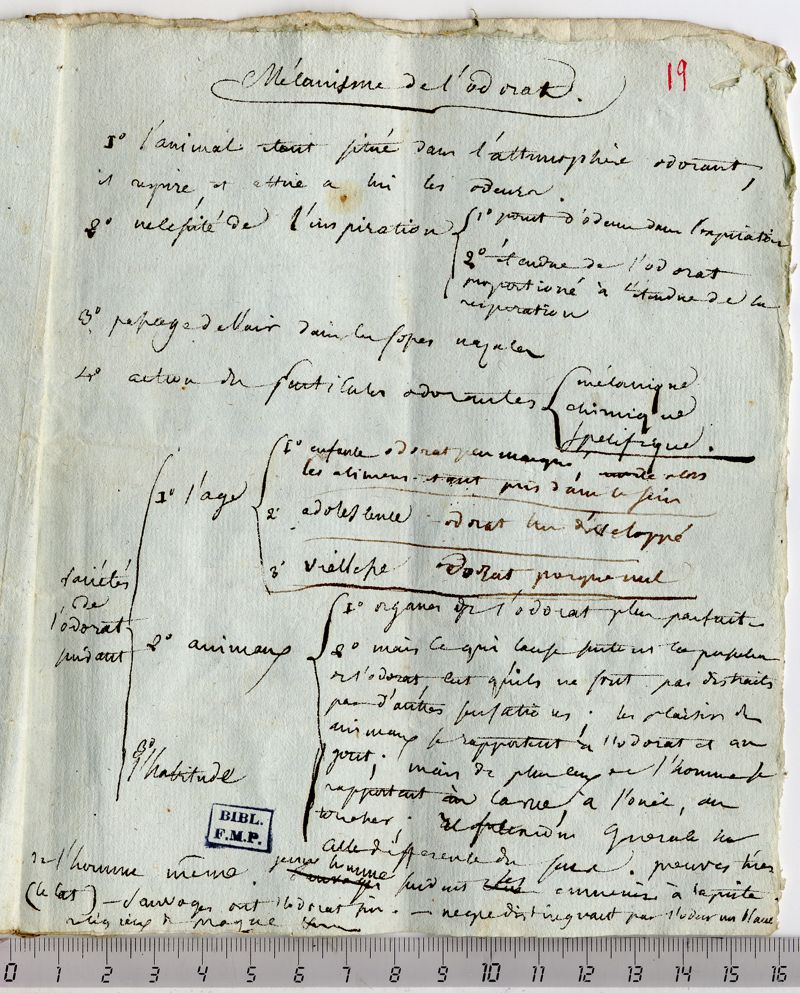 19
Mécanisme de l'odorat.
1° l'animal étant situé dans l'athmosphère odorant,
il respire, et attire a lui les odeurs.
2° necessité de l'inspiration
1° point d'odeur dans l'expiration
2° étendue de l'odorat
proportionné à l'étendue de la
respiration
3° passage de l'air dans les fosses nazales
4° action des particules odorantes
mécanique
chimique
spécifique.
variétés
de
l'odorat
suivant
1° l'age
1° enfance odorat peu marqué, alors
les alimens étant pris dans le sein
2° adolescence odorat bien développé
3° viellesse odorat presque nul
2° animaux
1° organes de l'odorat plus parfaits
2° mais ce qui cause surtout la
de l'odorat est qu'ils ne sont pas distraits
par d'autres sensations; les plaisirs des
animaux se rapportent à l'odorat et au
gout; mais de plus ceux de l'homme se
rapportent à la vue, a l'ouie, au
toucher; generale de
celle differente du
3° l'habitude
BIBL.
F.M.P.
de l'homme même jeune homme suivant les ennemis à la piste.
(le Cat) — Sauvages ont l'odorat fin. — negre distinguant par l'odeur un blanc
religieux de prague
0 1 2 3 4 5 6 7 8 9 10 11 12 13 14 15 16